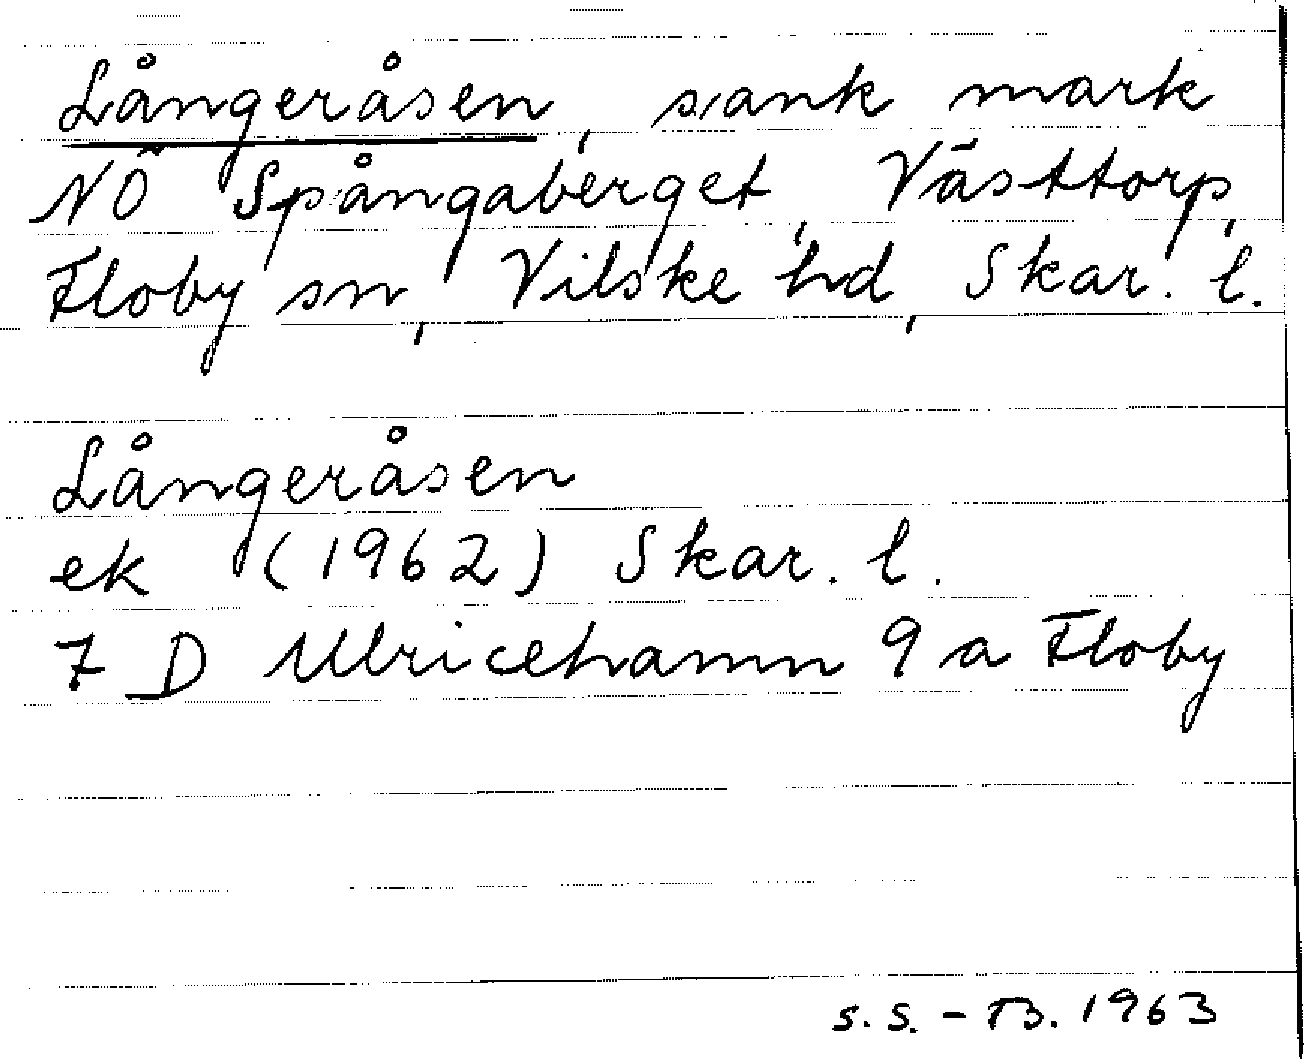 Långeråsen, sank mark
NÖ Spångaberget, Västtorp,
Floby sn, Vilske hd, Skar. l.
Långeråsen
ek (1962) Skar. l.
7 D Ulricehamn 9 a Floby
S. S. - TB. 1963